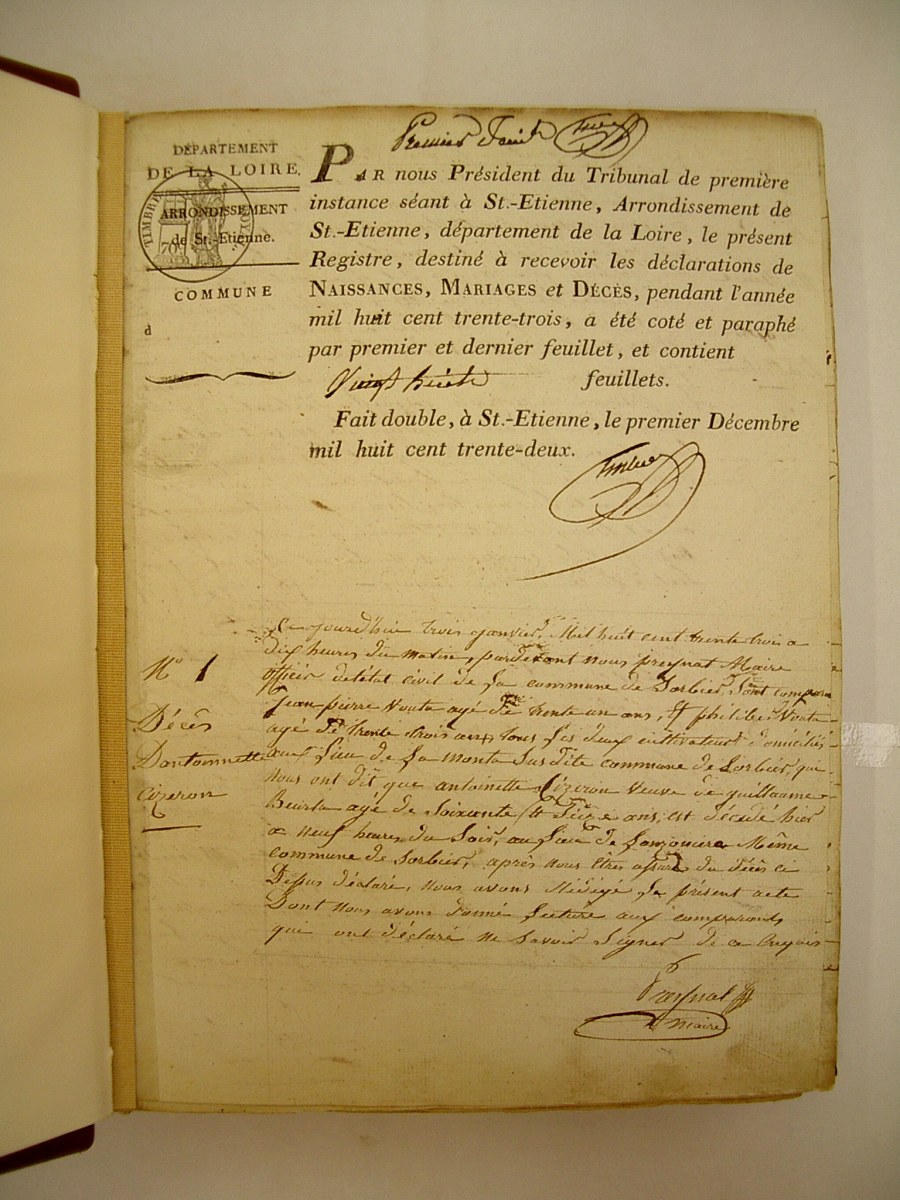 Premier
DÉPARTEMENT
DE LA LOIRE,
ARRONDISSEMENT
de St.-Etienne.
COMMUNE
d
TIMBRE ROYAL
70
PAR nous Président du Tribunal de première
instance séant à St.-Etienne, Arrondissement de
St.-Etienne, département de la Loire, le présent
Registre, destiné à recevoir les déclarations de
NAISSANCES, MARIAGES et DÉCÈS, pendant l'année
mil huit cent trente-trois, a été coté et paraphé
par premier et dernier feuillet, et contient
Vingt feuillets.
Fait double, à St.-Etienne, le premier Décembre
mil huit cent trente-deux.
No 1
Décès
Dantoinnette
Cizeron
Ce jourd'hui trois janvier, Mil huit cent trente trois a
dix heures du matin, pardevant nous preynat Maire
officier detétat civil de la commune de Sorbier, Sont comparu
Jean pierre Vouta agé de trente un ans, Et philiber Vouta
agé de trente trois ans, tous les deux cultivateurs domiciliés
aux lieu de la monta Sus dite commune de Sorbier, qui
nous ont dit que antoinette Cizeron Veuve de guillaume
agé de Soixante et Seize ans, est décédé hier
a neuf heures du Soir, au lieu de Même
commune de Sorbier, après nous êtres assuré du décès ci
Dessus déclaré, nous avons Rédigé le présent acte
Dont nous avons donné lecture aux comparants
que ont déclaré ne Savoir Signer de ce Enquis
Preynat
Maire